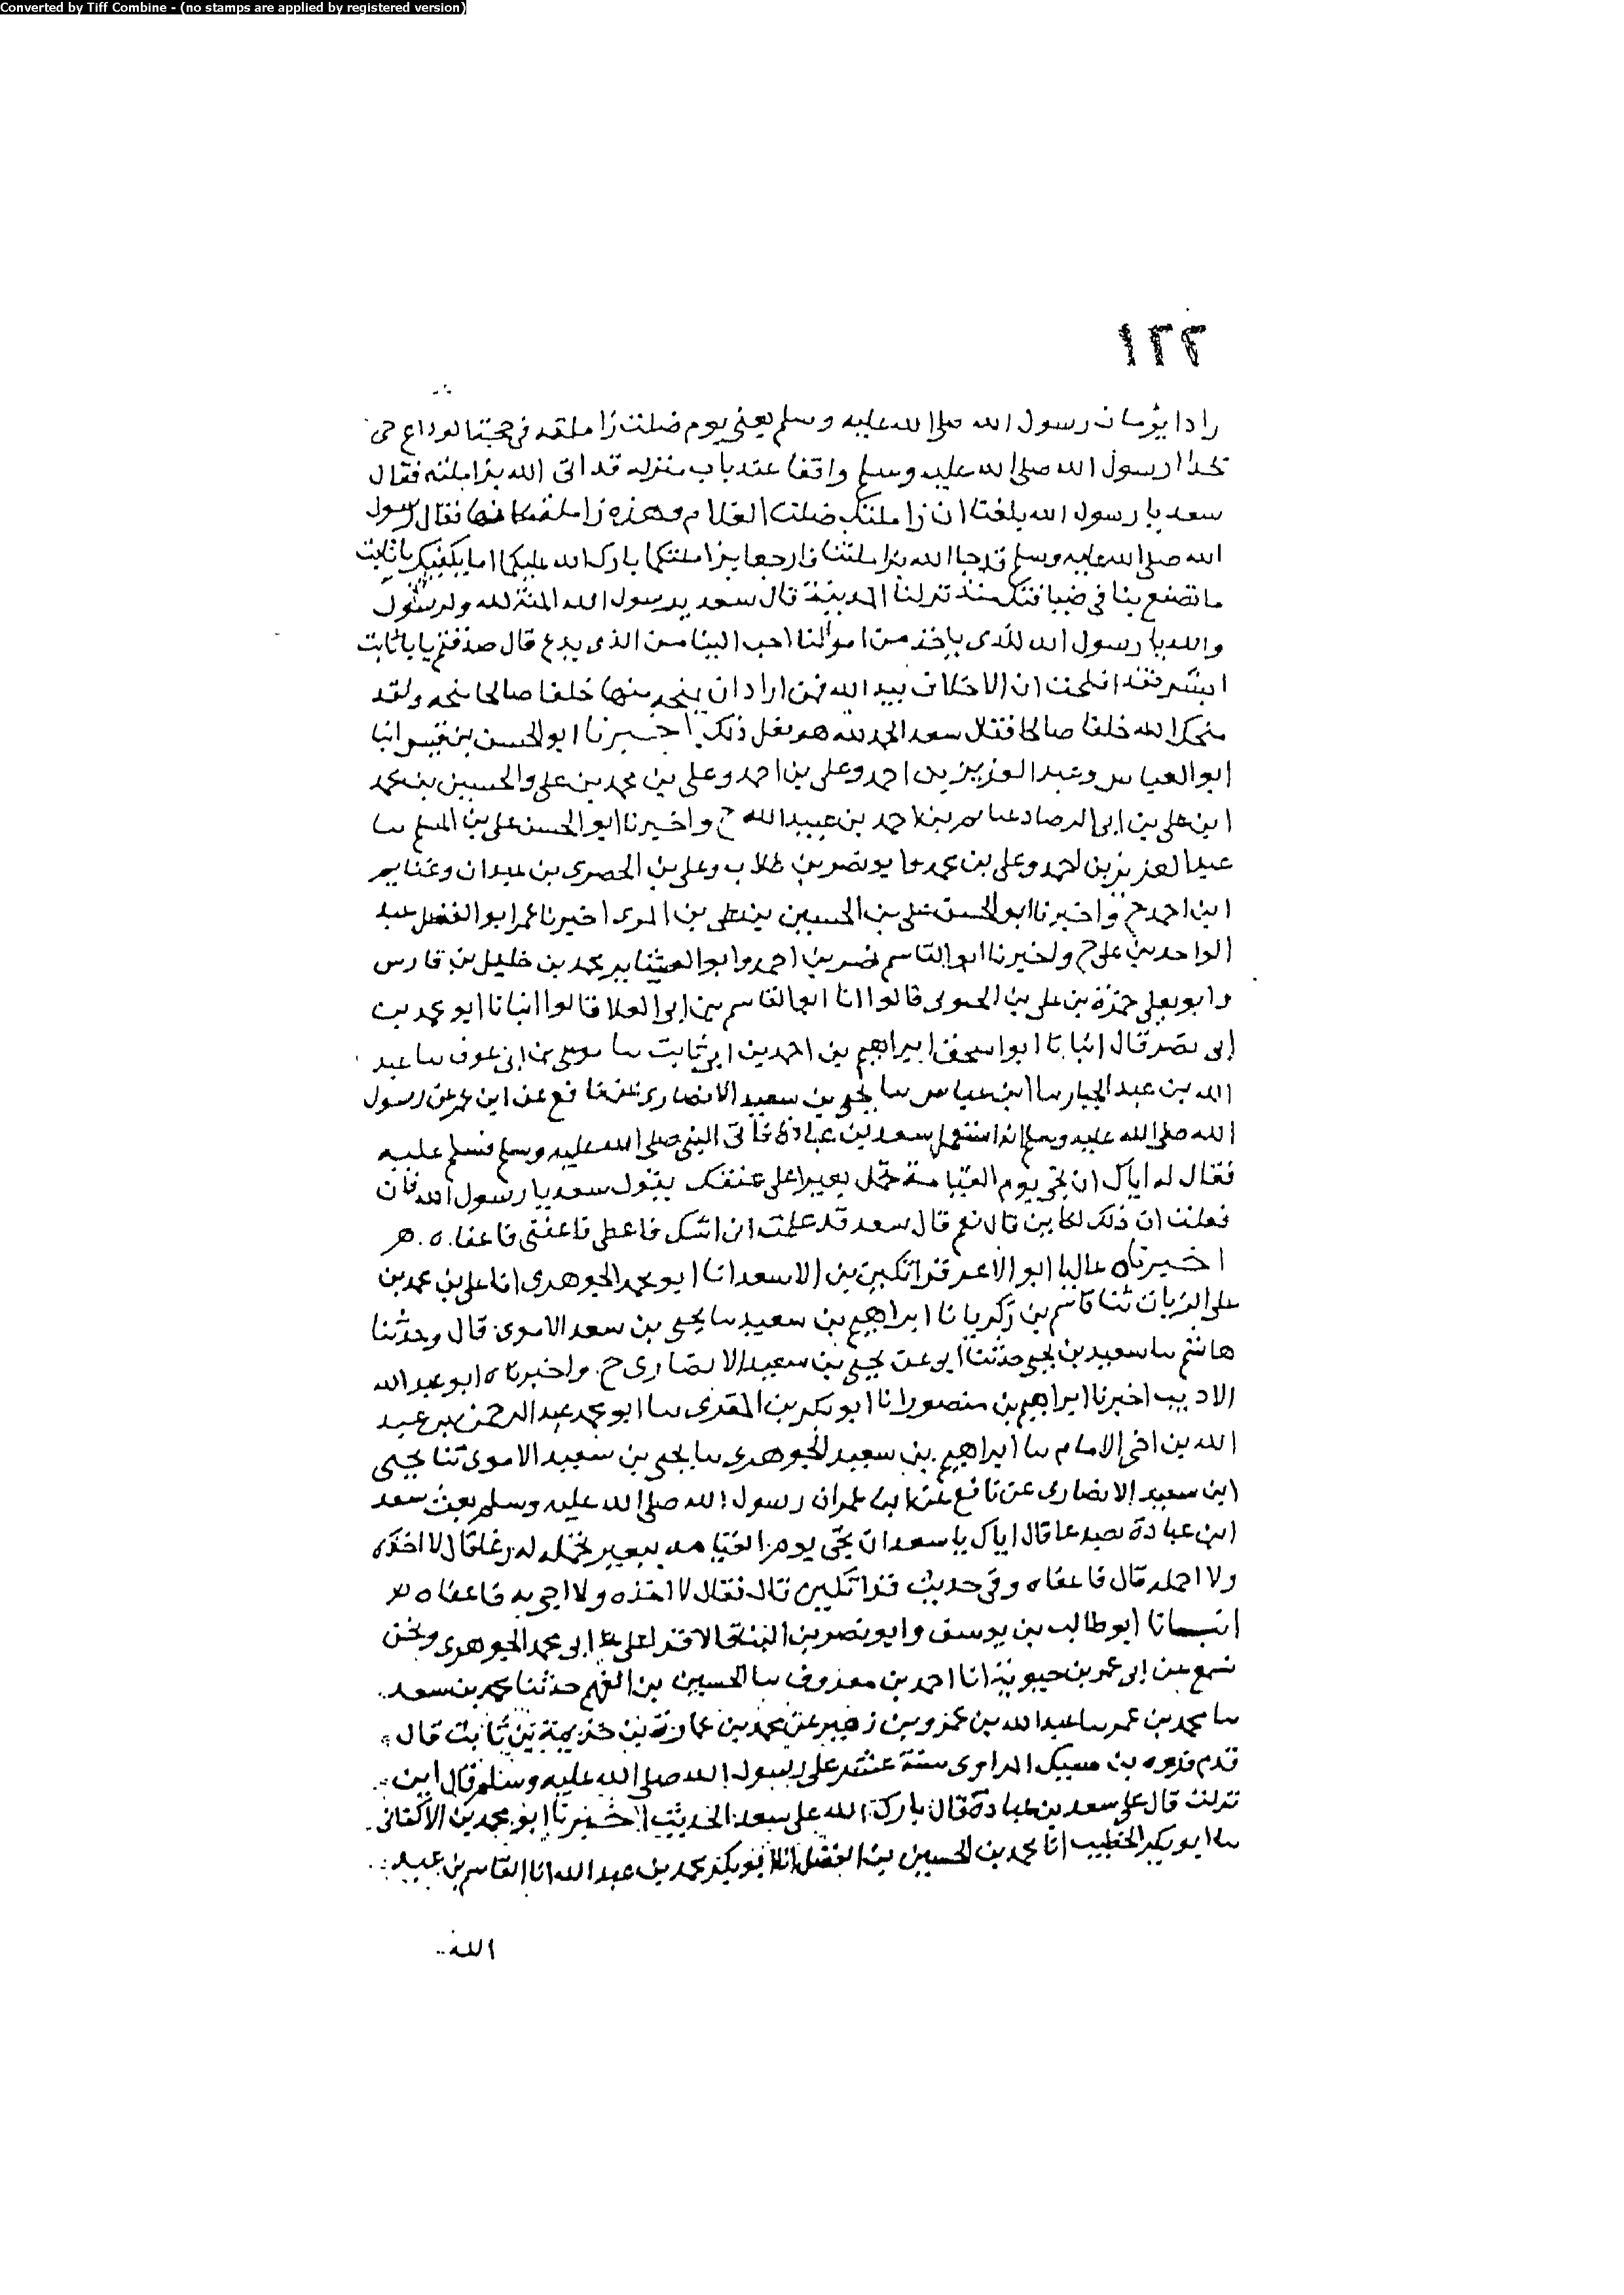 Converted by Tiff Combine - (no stamps are applied by registered version)
١٣٢
رادا يؤمان رسول الله صلى الله عليه وسلم يعني يوم ضلت زاملته في حجة الوداع حتى
رسول الله صلى الله عليه وسلم واقفا عند باب منزله قد اتى الله بزاملته فقال
سعد يا رسول الله بلغنا ان زاملتك ضلت الغلام وهذه زاملة مكانها فقال رسول
الله صلى الله عليه وسلم قد جا الله بزاملتنا فارجعا بزاملتكما بارك الله عليكما اما يكفيك يا ثابت
ما تصنع بنا في ضيافتك منذ نزلنا المدينة قال سعد يرسول الله المنة لله ولرسول
والله يا رسول الله للذي ياخذ من اموالنا احب الينا من الذي يدع قال صدقتم يابا ثابت
ابشر فقد افلحت ان الاخلاق بيد الله فمن اراد ان ينحه منها خلقا صالحا منحه ولقد
منحك الله خلقا صالحا فقال سعد الحمد لله هو فعل ذلك اخبرنا ابو الحسن بن قبيس انبا
ابو العباس وعبد العزيز بن احمد وعلي بن احمد وعلي بن محمد بن علي والحسين بن محمد
ابن علي بن ابي الرضا وعاصم بن احمد بن عبيد الله ح واخبرنا ابو الحسن علي بن المسلم سا
عبد العزيز بن احمد وعلي بن محمد وابو نصر بن طلاب وعلي بن الحصري بن عبدان وغنايم
ابن احمد ح واخبرنا ابو الحسن علي بن الحسين بن علي بن اخبرنا عمر ابو الفضل عبد
الواحد بن علي ح واخبرنا ابو القاسم نصر بن احمد وابو العشاير محمد بن خليل بن فارس
وابو يعلى حمزة بن علي بن قالوا انا ابو القاسم بن ابي العلا قالوا انبانا ابو محمد بن
ابي نصر قال انبانا ابو اسحق ابراهيم بن احمد بن ابي ثابت سا موسى بن ابي عوف سا عبد
الله بن عبد الجبار سا ابن عياس سا يحيى بن سعيد الانصاري عن نافع عن ابن عمر عن رسول
الله صلى الله عليه وسلم انه استعمل سعد بن عبادة فاتى النبي صلى الله عليه وسلم فسلم عليه
فقال له اياك ان تجي يوم القيامة تحمل بعيرا على عنقك يقول سعد يا رسول الله فان
فعلت ان ذلك لكاين قال نعم قال سعد قد علمت ان اسل فاعطى فاعفني فاعفاه
اخبرناه عاليا ابو الاعز قراتكين بن الاسعد انا ابو محمد الجوهري انا علي بن محمد بن
علي الزيات ثنا قاسم بن زكريا نا ابراهيم بن سعيد سا يحيى بن سعد الاموي قال وحدثنا
هاشم سا سعيد بن يحيى حدثنا ابو عن يحيى بن سعيد الانصاري ح واخبرناه ابو عبد الله
الاديب اخبرنا ابراهيم بن منصور انا ابو بكر بن المقري سا ابو محمد عبد الرحمن بن عبيد
الله بن اخي الامام سا ابراهيم بن سعيد الجوهري سا يحيى بن سعيد الاموي ثنا يحيى
ابن سعيد الانصاري عن نافع عن ابن عمر ان رسول الله صلى الله عليه وسلم بعث سعد
ابن عبادة مصدقا قال اياك يا سعد ان تجي يوم القيامه ببعير تحمله له رغا قال لا اخذه
ولا احمله قال فاعفاه وفي حديث قراتكين قال فقال لا اخذه ولا اجي به فاعفاه
انبانا ابو طالب بن يوسف وابو نصر بن البنا قالا قرا علي ابي محمد الجوهري ونحن
نسمع عن ابي عمر بن حيوية انا احمد بن معروف سا الحسين بن الفهم حدثنا محمد بن سعد
سا محمد بن عمر سا عبد الله بن عمرو بن زهير عن محمد بن عمارة بن خزيمة بن ثابت قال
قدم فروه بن مسيك المرادي سنة عشر على رسول الله صلى الله عليه وسلم قال اين
نزلت قال على سعد بن عبادة قال بارك الله على سعد الحديث اخبرنا ابو محمد بن الاكفاني
سا ابو بكر الخطيب انا محمد بن الحسين بن الفضل انا ابو بكر محمد بن عبد الله انا القاسم بن عبيد
الله